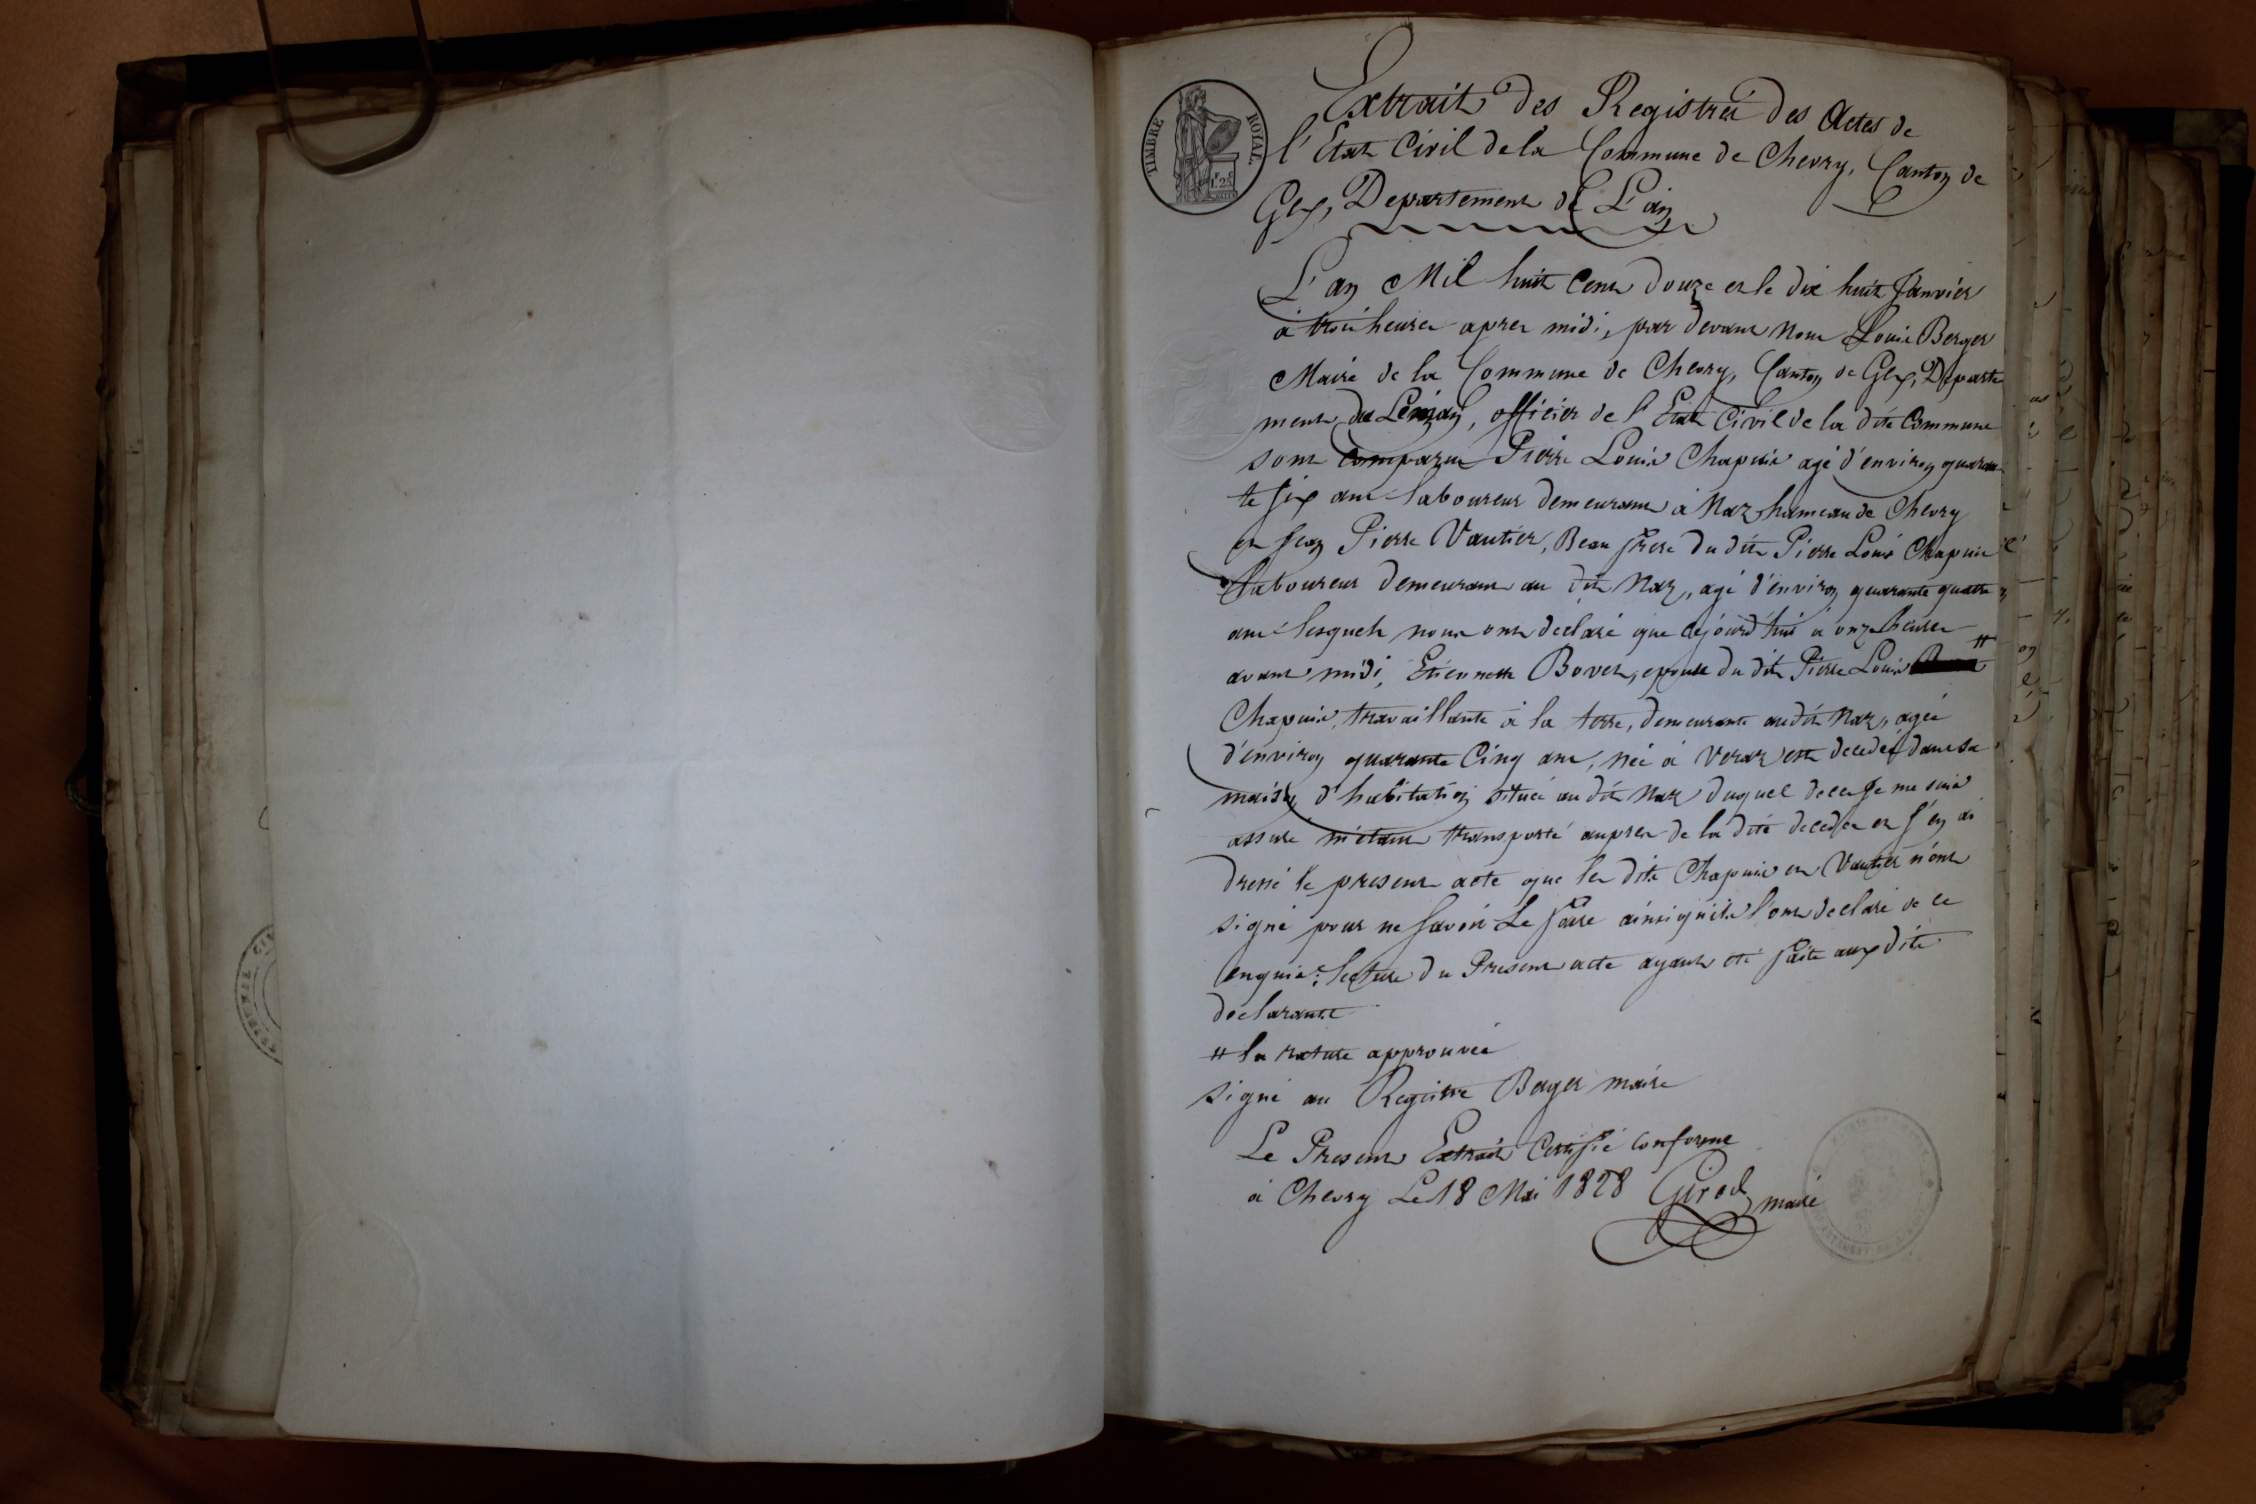 TIMBRE ROYAL
Extrait des Registres des Actes de
l'Etat Civil de la Commune de Chevry, Canton de
Gex, Departement de L'ain
L'an Mil huit Cent douze et le dix huit Janvier
à trois heures apres midi, par devant nous Louis Berger
Maire de la Commune de Chevry, Canton de Gex, Departe
ment du Leman, officier de l'Etat Civil de la dite Commune
sont comparus Pierre Louis Chapuis agé d'environ quaran
te six ans laboureur demeurant à Naz hameau de Chevry
et Jean Pierre Vautier, Beau frere du dit Pierre Louis Chapuis
laboureur demeurant au dit Naz, agé d'environ quarante quatre
ans lesquels nous ont declaré que cejourd'hui à onze heures
avant midi, Etiennette Bovet, epouse du dit Pierre Louis #
Chapuis, travaillante à la terre, demeurante audit Naz, agée
d'environ quarante Cinq ans, née à Veraz est decedée dans sa
maison d'habitation située au dit Naz duquel deces je me suis
assuré m'etant transporté aupres de la dite decedée et j'en ai
dressé le present acte que les dits Chapuis et Vautier n'ont
signé pour ne savoir Le faire ainsi qu'ils l'ont declaré de ce
enquis; lecture du Present acte ayant eté faite aux dits
declarants
# la rature approuvée
signé au Registre Berger maire
Le Present Extrait Certifié conforme
à Chevry Le 18 Mai 1828 Girod maire